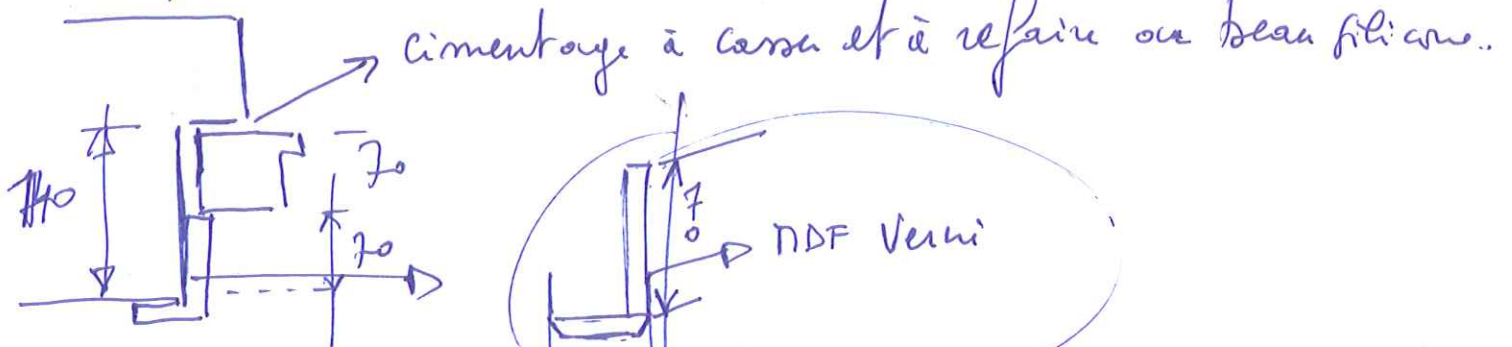 cimentage à casser et à refaire ou beau silicone..
140
70
70
70
MDF Verni